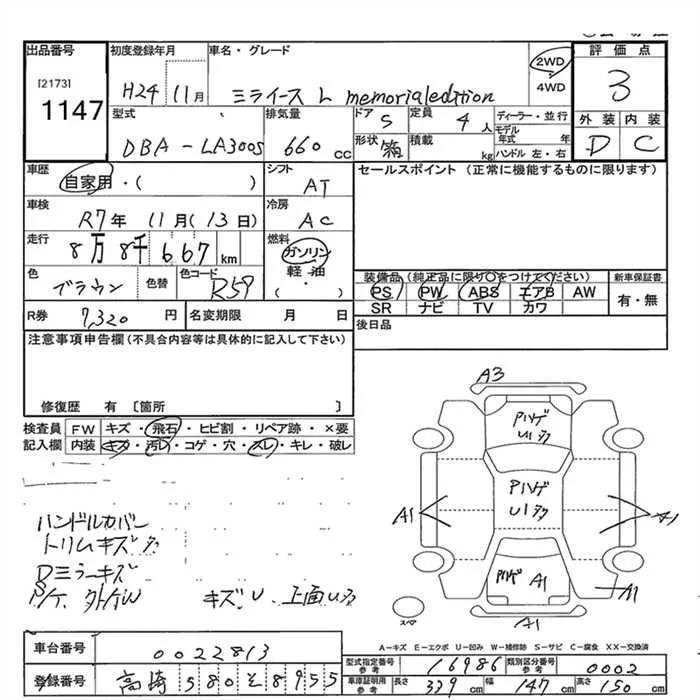 出品番号
[2173]
1147
初度登録年月
H24 11月
車名・グレード
ミライース L memorialedition
2WD
4WD
評価点
3
外装 内装
D C
型式
DBA-LA300S
排気量
660 cc
ドア
5
定員
4人
ディーラー・並行
モデル年式 年
ハンドル 左・右
形状
箱
積載
kg
車歴
自家用・( )
シフト
AT
セールスポイント (正常に機能するものに限ります)
車検
R7年 11月(13日)
冷房
AC
走行
8万8千667km
燃料
ガソリン
軽・油
・
( )
色
ブラウン
色替
色コード
R59
装備品(純正品に限り○をつけてください)
PS PW ABS エアB AW
SR ナビ TV カワ
新車保証書
有・無
R券
7,320円
名変期限 月 日
後日品
注意事項申告欄(不具合内容等は具体的に記入して下さい)
修復歴 有 [箇所 ]
検査員記入欄
FW キズ・飛石・ヒビ割・リペア跡・×要
内装 キズ・汚レ・コゲ・穴・スレ・キレ・破レ
ハンドルカバー
トリムキズ多
Dミラーキズ
キズU 上面U多
A3
Pハゲ
U1多
Pハゲ
U1多
A1
A1
Pハゲ A1
A1
A1
スペア
A-キズ E-エクボ U-凹み W-補修跡 S-サビ C-腐食 XX-交換済
車台番号
0022813
登録番号
高崎 580 そ 8955
型式指定番号
参考
16986
類別区分番号
参考
0002
車庫証明用
参考
長さ
339cm
幅
147cm
高さ
150cm